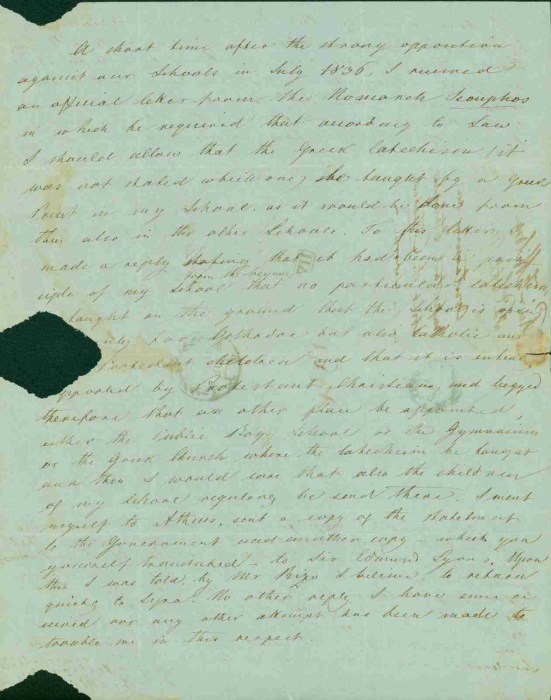 A short time after the strong opposition
against our Schools in July 1836, I received
an official letter from the Nomarch Scouphos
in which he required that according to Law
I should allow that the Greek Catechism (it
was not stated which one) be taught by a Greek
Priest in my School, as it would be done from
time also in the other Schools. To this letter I
made a reply stating that it had been a prin
from the beginn
ciple of my School that no particular catechism
taught on the ground that the School is open
only for Orthodox but also Catholic an
Protestant children and that it is entire
supported by Protestant Christians, and begged
therefore that an other place be appointed,
either the Public Boys School or the Gymnasium
or the Greek Church where the Catechism be taught
and then I would care that also the children
of my School regularly be send there. I went
myself to Athens, sent a copy of the statement
to the Government and another copy which you
yourself translated to Sir Edmund Lyons, Upon
this I was told by Mr Rizo I believe to return
quickly to Syra. No other reply I have since re
ceived nor any other attempt has been made to
trouble me in this respect.